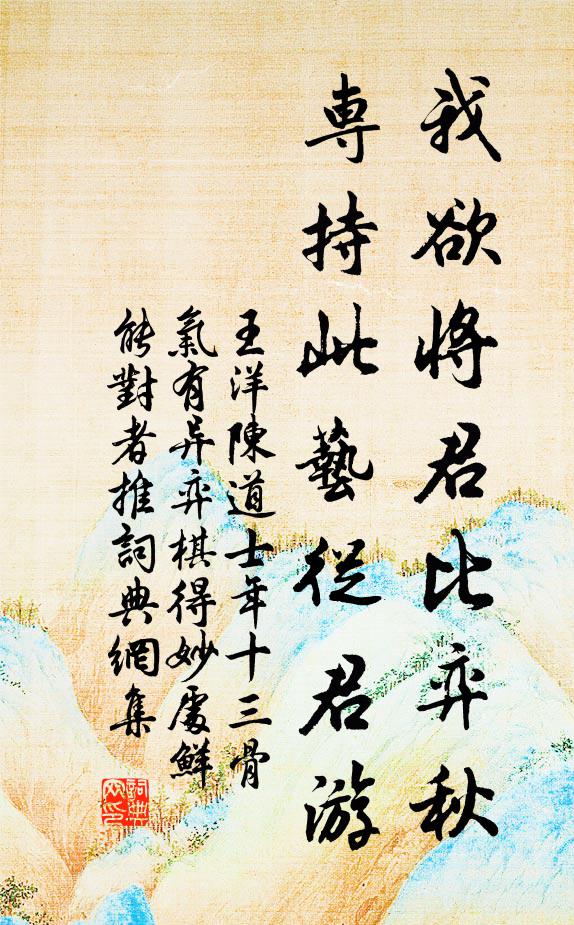 我欲將君比弈秋
專持此藝從君游
王洋陳道士年十三骨
氣有异弈棋得妙處鮮
能對者推詞典網集
詞典网印